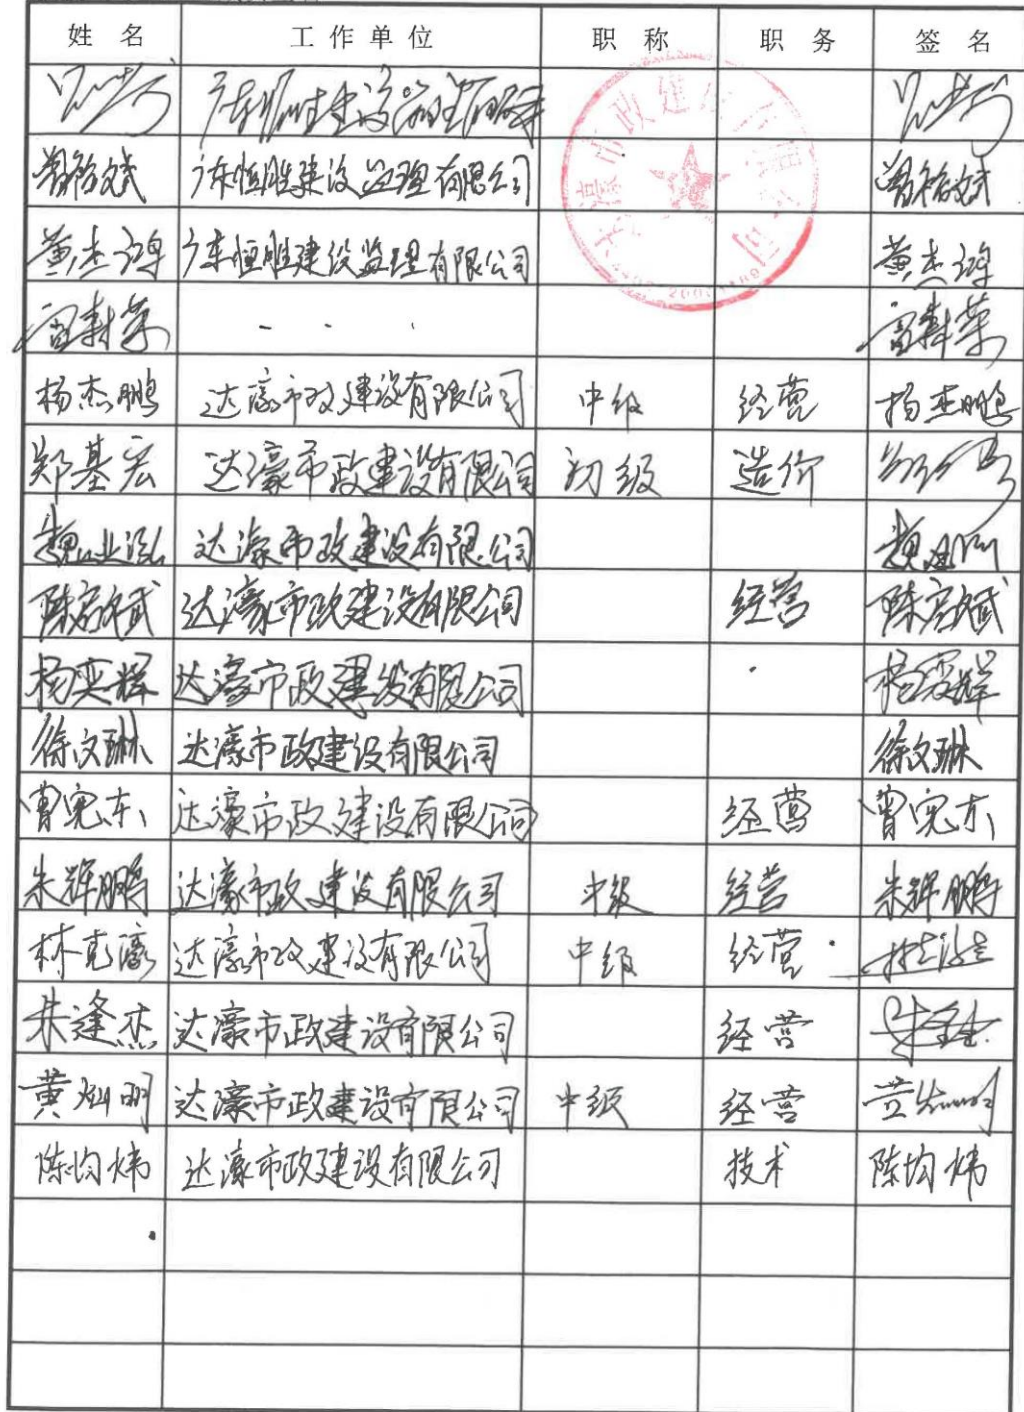 姓 名 工作单位 职 称 职 务 签 名
广东恒胜建设监理有限公司
曾裕斌 广东恒胜建设监理有限公司 曾裕斌
黄杰鸿 广东恒胜建设监理有限公司 黄杰鸿
- - -
杨杰鹏 达濠市政建设有限公司 中级 经营 杨杰鹏
郑基宏 达濠市政建设有限公司 初级 造价
魏业泓 达濠市政建设有限公司
陈启斌 达濠市政建设有限公司 经营 陈启斌
杨奕辉 达濠市政建设有限公司 杨奕辉
徐文琳 达濠市政建设有限公司 徐文琳
曾宪东 达濠市政建设有限公司 经营 曾宪东
朱辉鹏 达濠市政建设有限公司 中级 经营 朱辉鹏
林克濠 达濠市政建设有限公司 中级 经营
朱逢杰 达濠市政建设有限公司 经营
黄灿明 达濠市政建设有限公司 中级 经营 黄灿明
陈均炜 达濠市政建设有限公司 技术 陈均炜
达濠市政建设有限公司